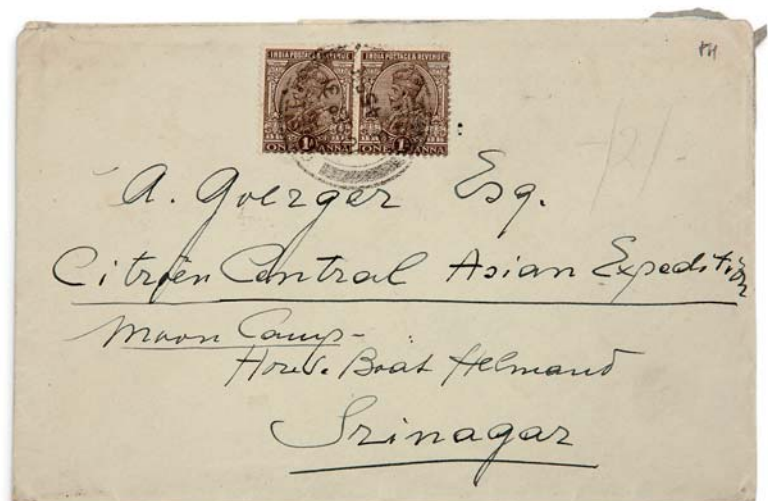 INDIA POSTAGE & REVENUE INDIA POSTAGE & REVENUE
1A 1A
ONE ANNA ONE ANNA
A. Goerger Esq.
Citroën Central Asian Expedition
Moon Camp-
House Boat Helmand
Srinagar